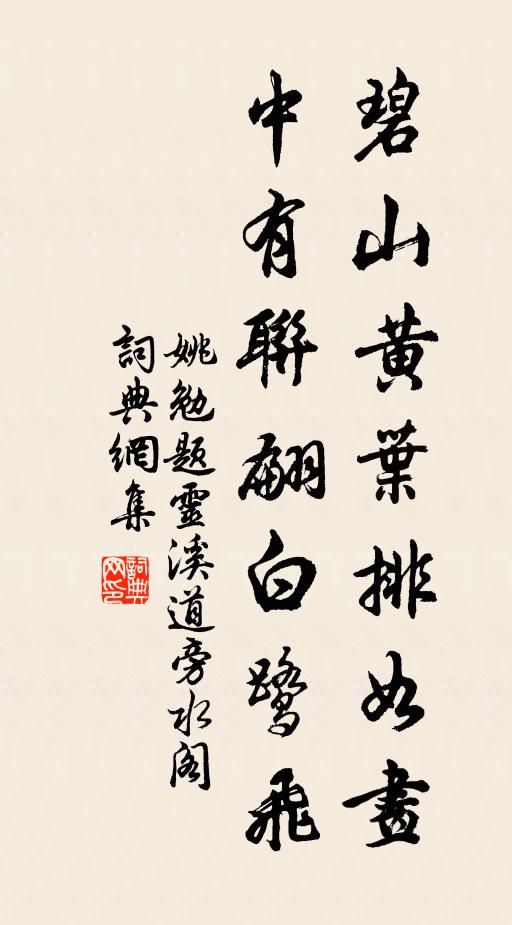 碧山黃葉排如畫
中有聯翩白鷺飛
姚勉題靈溪道旁水閣
詞典網集
詞典網印